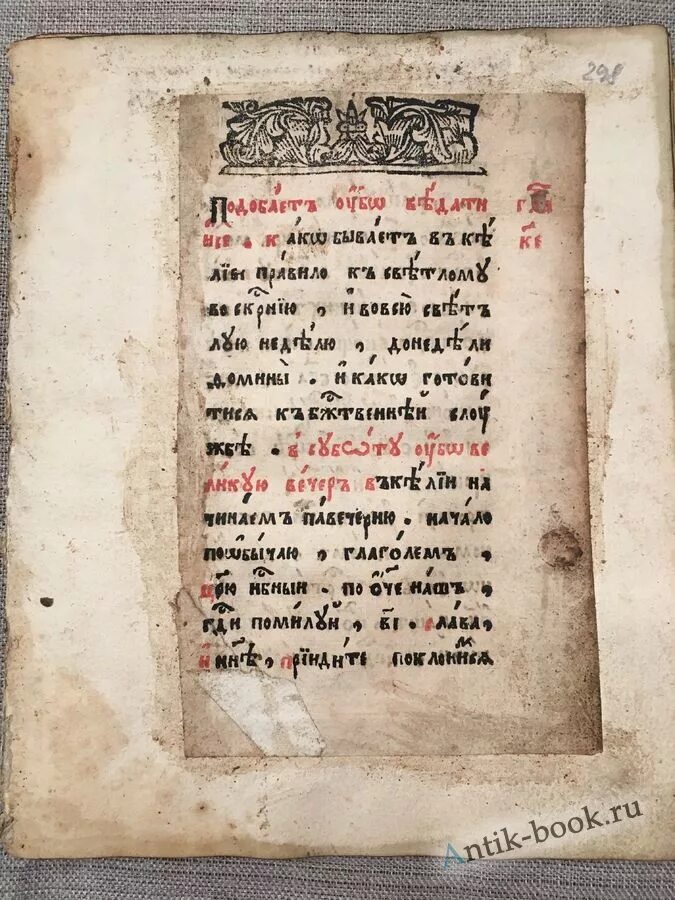 298
Подоба́етъ ᲂу҆́бѡ вѣ́дати
и҆се . ка́кѡ быва́етъ в̾ кѣ́
лїи пра́вило к̾ свѣ́тломꙋ
воскрⷭ҇нїю , и҆ во всю̀ свѣ́т
лꙋю недѣ́лю , до недѣ́ли
ѳомины̀ . и҆ ка́кѡ гото́ви
тисѧ къ бж҃твенней слꙋ́
жбѣ . в̾ сꙋббѡ́тꙋ ᲂу҆́бѡ ве
ли́кꙋю ве́черъ в̾ кѣ́лїи на
чина́емъ па́вече́рню . нача́ло
по ѡ҆бы́чаю , глаго́лемъ ,
црю̀ нбⷭ҇ный . по ѻ҆́ч҃е на́шъ ,
гдⷭ҇и поми́лꙋй , в҃і . сла́ва ,
и҆ ны́нѣ , прїиди́те поклони́мсѧ
гла
к҃е
Antik-book.ru